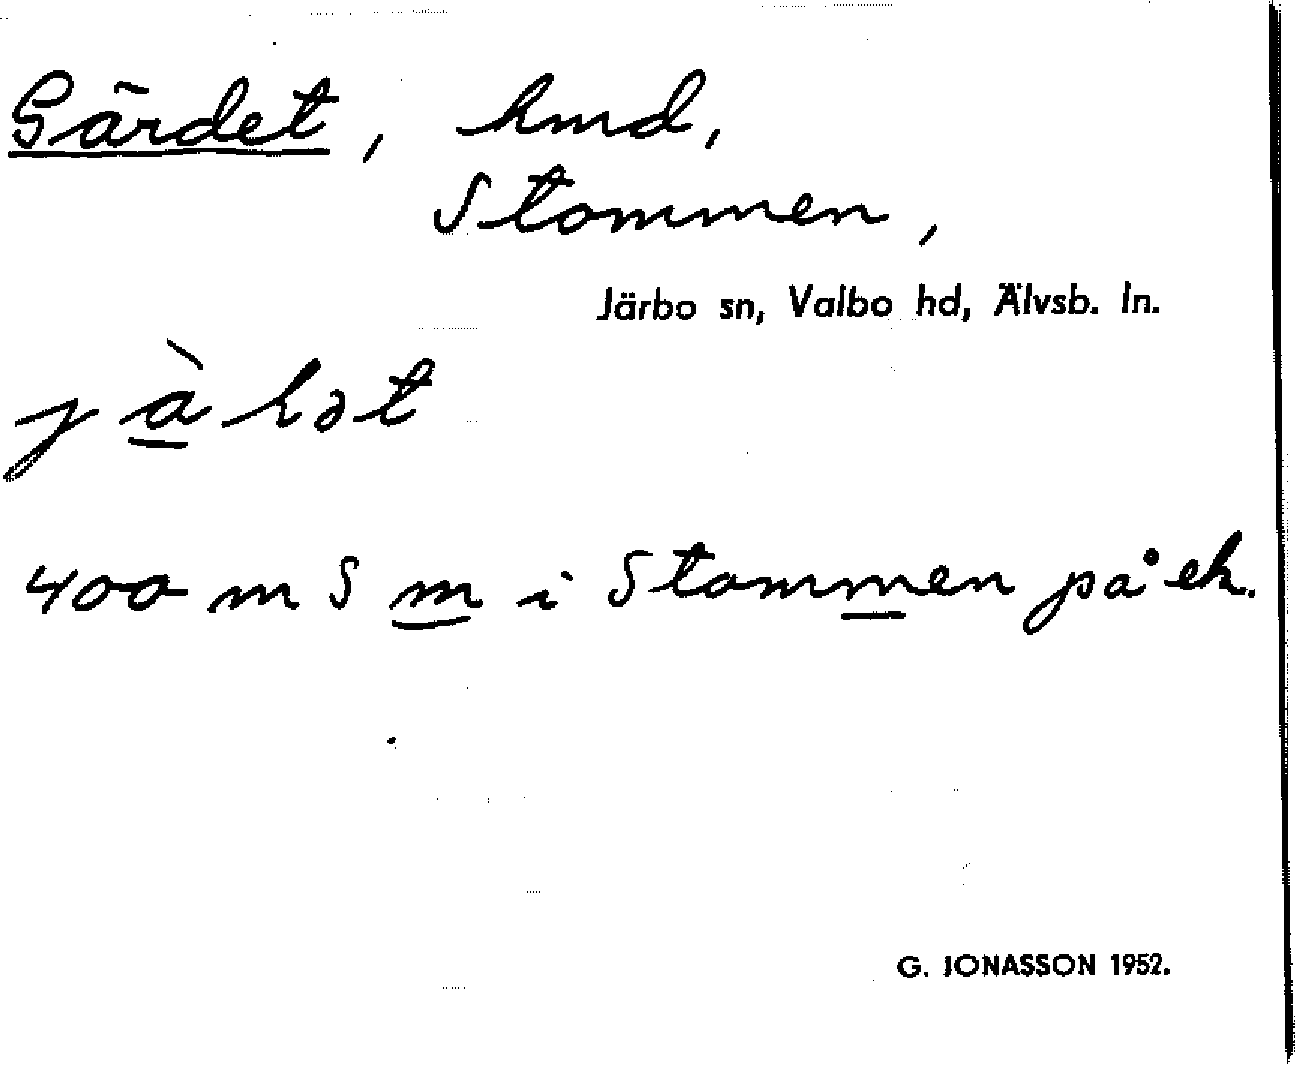 Gärdet, hmd,
Stommen,
Järbo sn, Valbo hd, Älvsb. ln.
400 m S m i Stommen på ek.
G. JONASSON 1952.